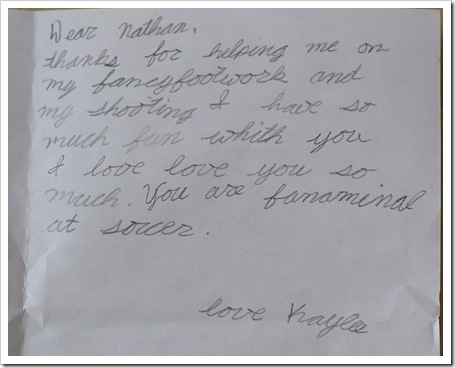 Dear Nathan,
thanks for helping me on
my fancyfootwork and
my shooting I have so
much fun whith you
I love love you so
much. You are fanaminal
at soccer.
love Kaylee